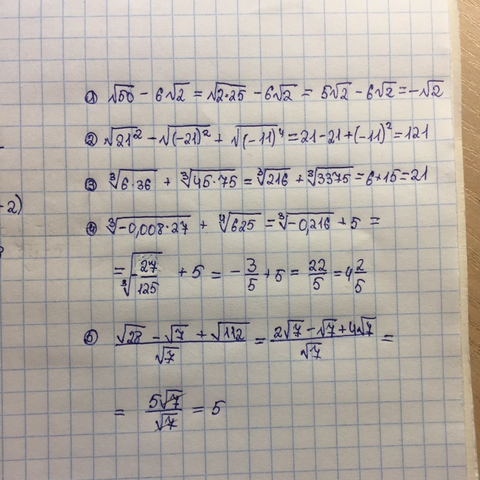 ① √50 - 6√2 = √2·25 - 6√2 = 5√2 - 6√2 = -√2
② √21² - √(-21)² + √(-11)⁴ = 21 - 21 + (-11)² = 121
③ ∛6·36 + ∛45·75 = ∛216 + ∛3375 = 6+15 = 21
-2)
④ ∛-0,008·27 + ∜625 = ∛-0,216 + 5 =
= ∛-27/125 + 5 = -3/5 + 5 = 22/5 = 4 2/5
⑤ (√28 - √7 + √112)/√7 = (2√7 - √7 + 4√7)/√7 =
= 5√7/√7 = 5